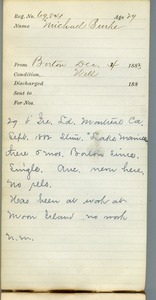 Reg. No. 69,841 Age 29
Name Michael Burke
From Boston Dec. 31 1883
Condition, Well
Discharged 188
Sent to
For Nos.
29 b Ire. Ld. Montreal Ca.
Sept. Lake Manitoba
there 5 mos. Boston since.
Single. Ave. never here,
no rels.
Has been at work at
Moon Island no work
n.m.